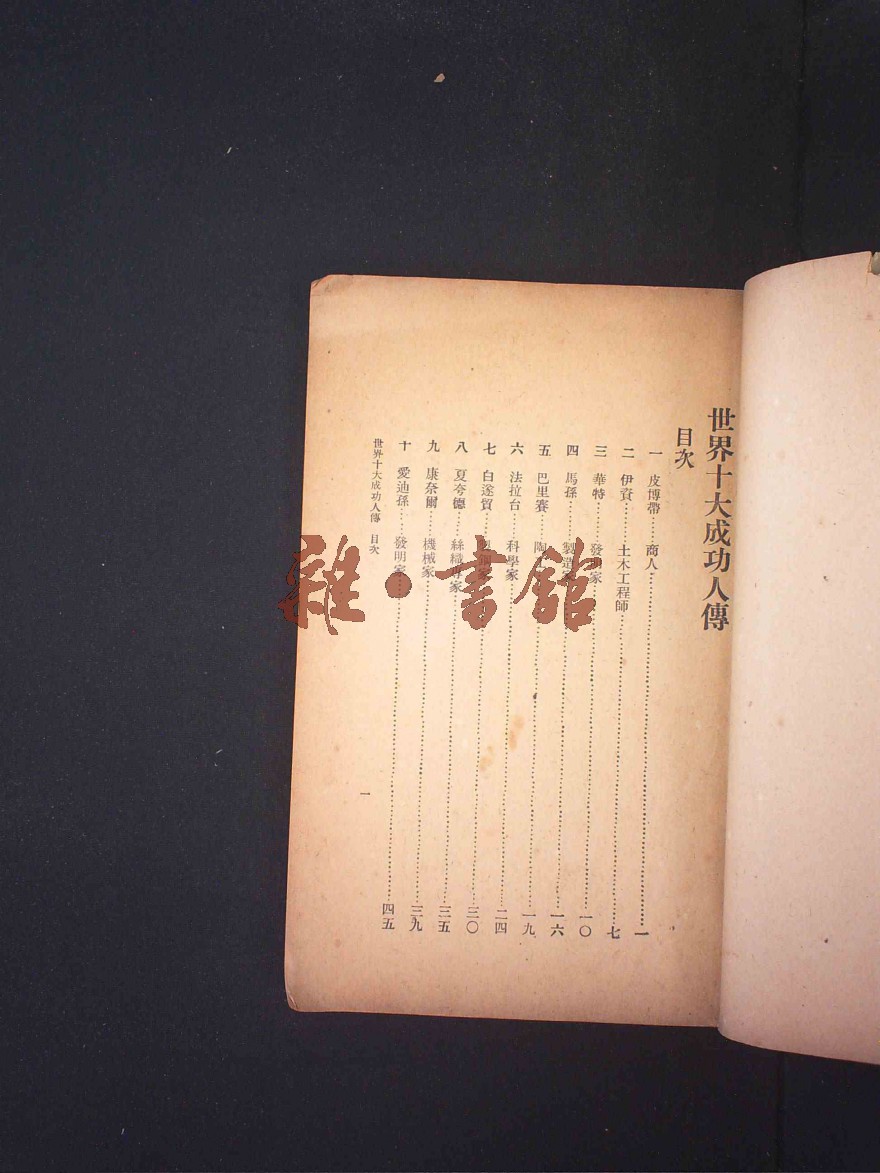 世界十大成功人傳
目次
一 皮博帶……商人……一
二 伊資……土木工程師……七
三 華特……發明家……一〇
四 馬孫……製造家……一六
五 巴里賽……陶……一九
六 法拉台……科學家……二四
七 白遂賀……家……三〇
八 夏夸德……絲織專家……三五
九 康奈爾……機械家……三九
十 愛迪孫……發明家……四五
世界十大成功人傳 目次
一
雜·書館